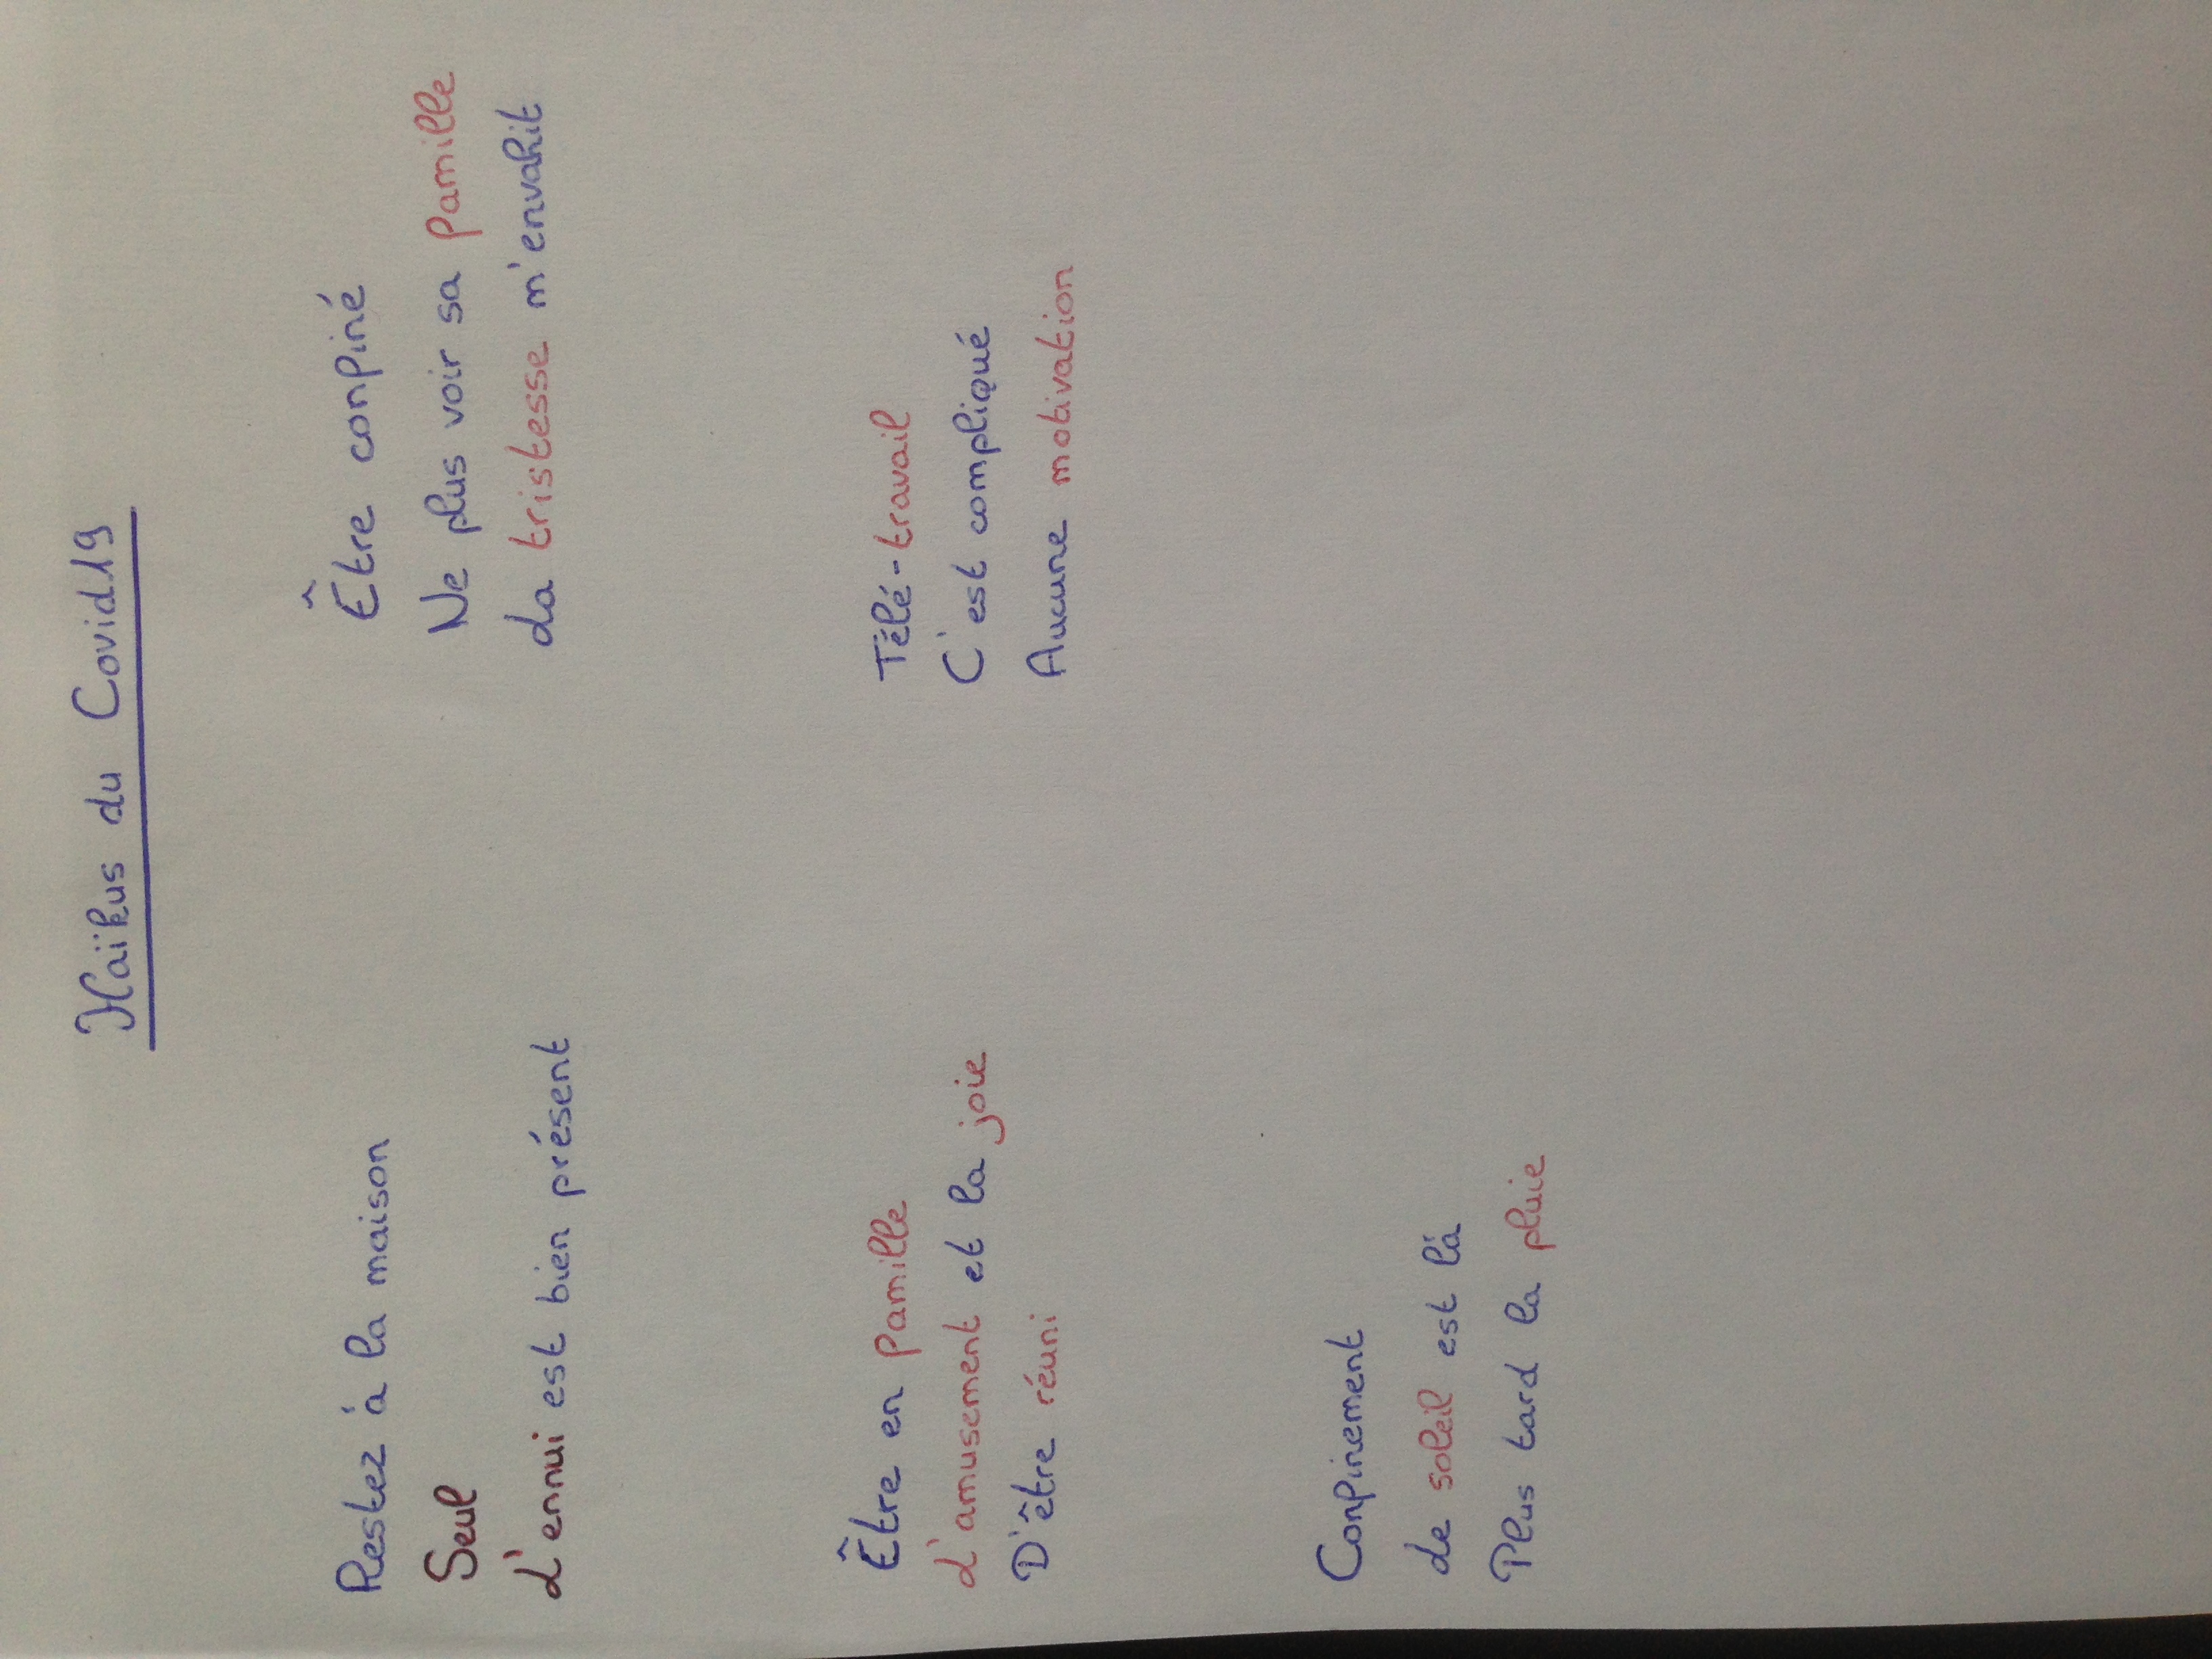 Haïkus du Covid19
Restez à la maison
Seul
L'ennui est bien présent
Être confiné
Ne plus voir sa famille
La tristesse m'envahit
Être en famille
L'amusement et la joie
D'être réuni
Télé-travail
C'est compliqué
Aucune motivation
Confinement
Le soleil est là
Plus tard la pluie